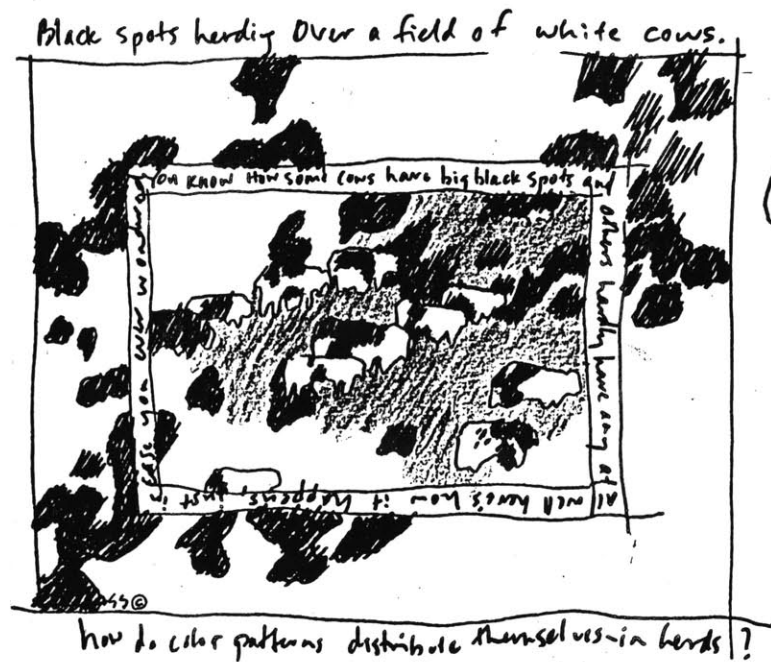 Black spots herding Over a field of white cows.
You know How some cows have big black spots and
others hardly have any at
All well here's how it happens, just i
n case you ever wondered
SS©
how do color patterns distribute themselves-in herds?